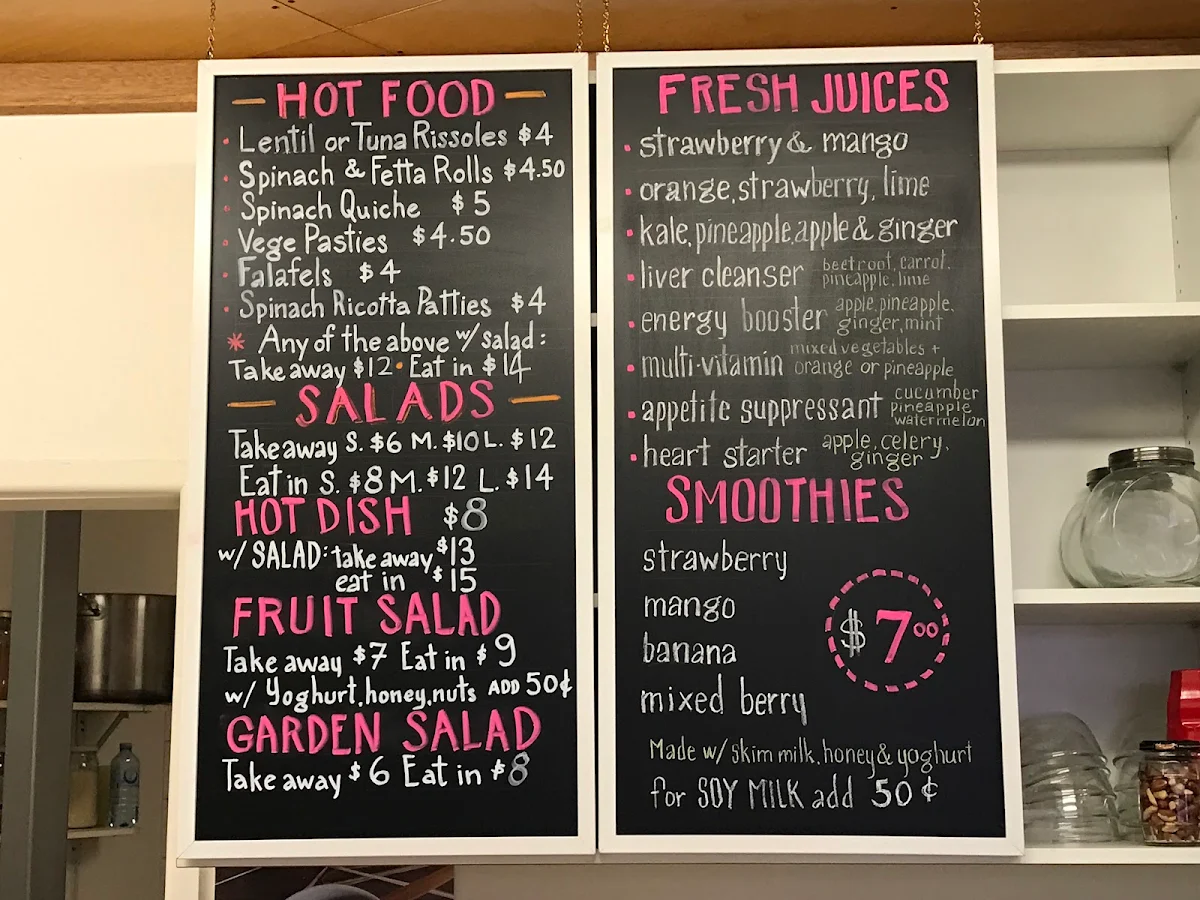 HOT FOOD
Lentil or Tuna Rissoles $4
Spinach & Fetta Rolls $4.50
Spinach Quiche $5
Vege Pasties $4.50
Falafels $4
Spinach Ricotta Patties $4
* Any of the above w/ salad:
Take away $12 • Eat in $14
SALADS
Takeaway S. $6 M. $10 L. $12
Eat in S. $8 M. $12 L. $14
HOT DISH $8
w/ SALAD: take away $13
eat in $15
FRUIT SALAD
Take away $7 Eat in $9
w/ Yoghurt, honey, nuts ADD 50¢
GARDEN SALAD
Take away $6 Eat in $8
FRESH JUICES
• strawberry & mango
• orange, strawberry, lime
• kale, pineapple, apple & ginger
• liver cleanser beetroot, carrot, pineapple, lime
• energy booster apple, pineapple, ginger, mint
• multi-vitamin mixed vegetables + orange or pineapple
• appetite suppressant cucumber pineapple watermelon
• heart starter apple, celery, ginger
SMOOTHIES
strawberry
mango
banana
mixed berry
$7.00
Made w/ skim milk, honey & yoghurt
for SOY MILK add 50¢